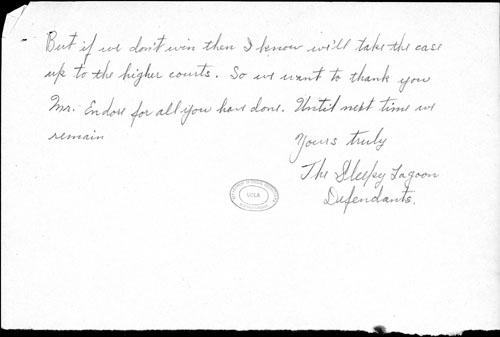 But if we don't win then I know we'll take the case
up to the higher courts. So we want to thank you
Mr. Endore for all you have done. Until next time we
remain
Yours truly
The Sleepy Lagoon
Defendants.
UCLA